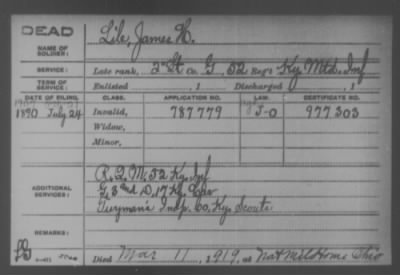 DEAD
NAME OF SOLDIER: Lile, James H.
SERVICE: Late rank, 2nd Lt Co. G, 52 Reg't Ky. Mtd. Inf
TERM OF SERVICE: Enlisted , 1 Discharged , 1
DATE OF FILING. CLASS. APPLICATION NO. LAW. CERTIFICATE NO.
1890 July 24 Invalid, 787779 J-O 977303
Widow,
Minor,
ADDITIONAL SERVICES: R.Q.M. 52 Ky. Inf
G, 3rd D, 17 Ky. Cav
Twyman's Indp. Co. Ky. Scouts
REMARKS:
Died Mar 11, 1919, at Nat Mil Home Ohio